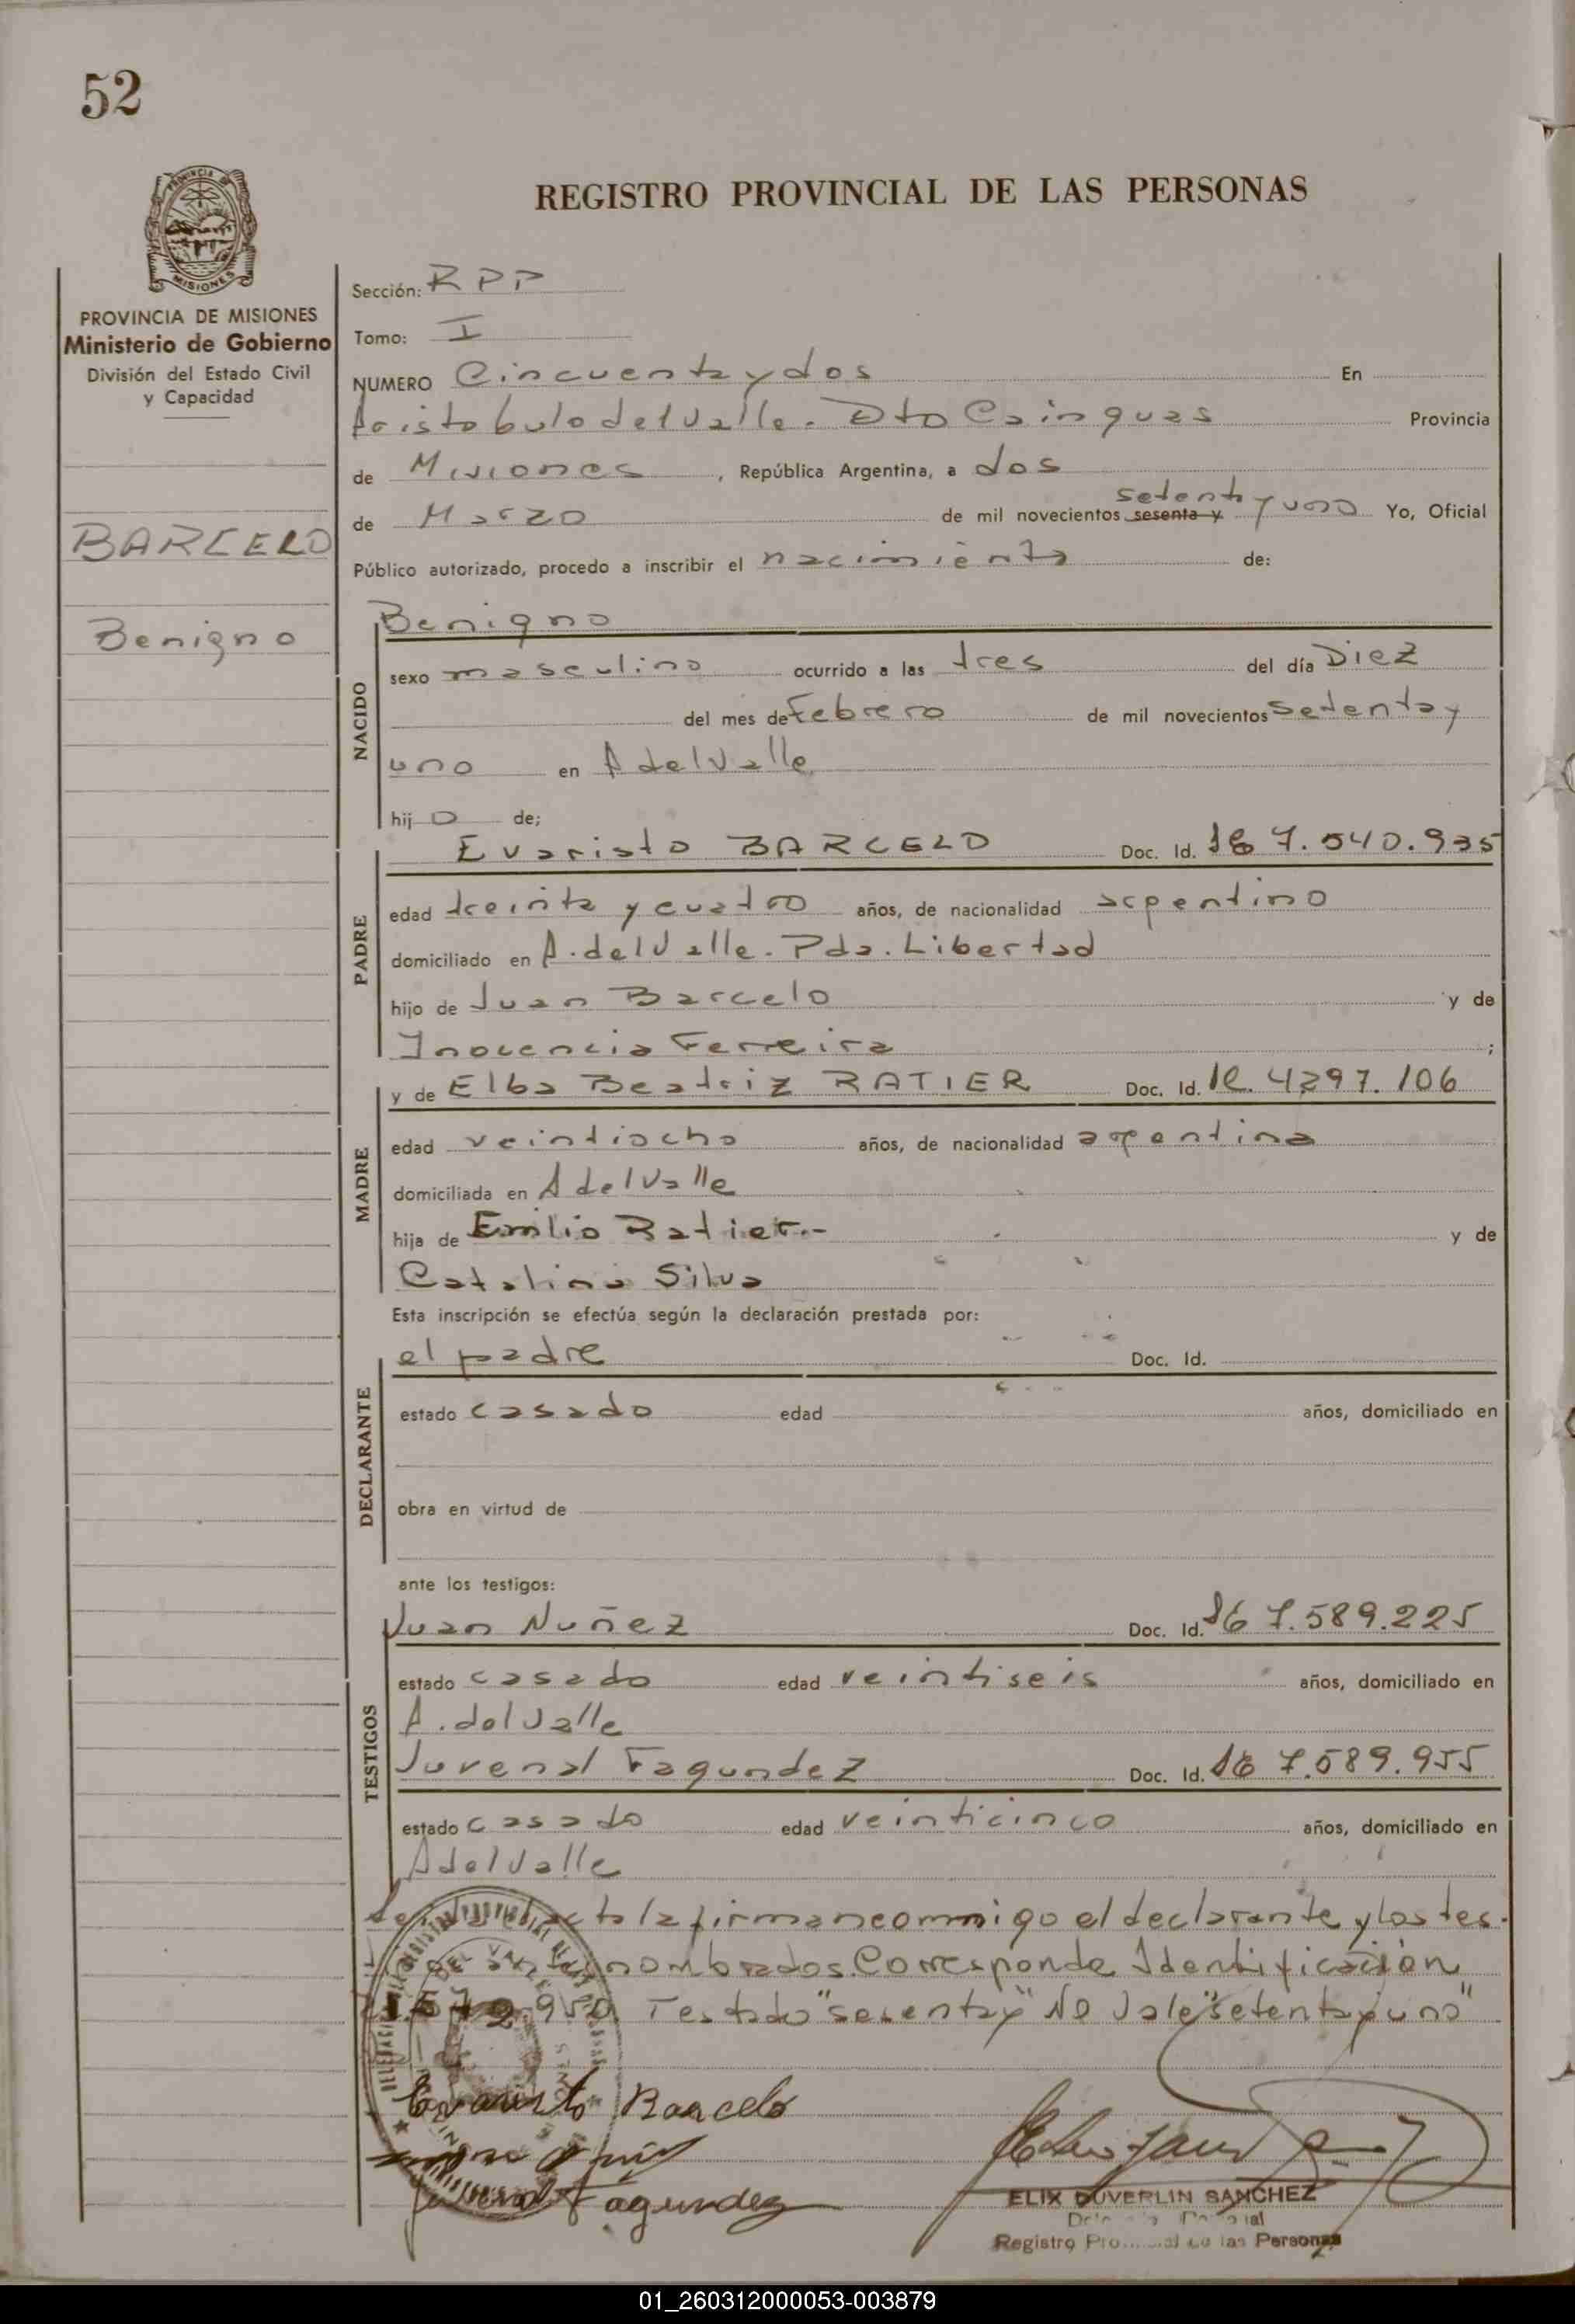 52
REGISTRO PROVINCIAL DE LAS PERSONAS
PROVINCIA DE MISIONES
Ministerio de Gobierno
División del Estado Civil
y Capacidad
BARCELO
Benigno
Sección: RPP
Tomo: I
NUMERO Cincuenta y dos En
Aristobulo del Valle. Dto Cainguas Provincia
de Misiones, República Argentina, a dos
de Marzo de mil novecientos sesenta y setenta y uno Yo, Oficial
Público autorizado, procedo a inscribir el nacimiento de:
Benigno
NACIDO
sexo masculino ocurrido a las tres del día Diez
del mes de Febrero de mil novecientos setenta y
uno en A del Valle
hijo de;
PADRE
Evaristo BARCELO Doc. Id. 7.540.935
edad treinta y cuatro años, de nacionalidad argentino
domiciliado en A. del Valle. Pda. Libertad
hijo de Juan Barcelo y de
Inocencia Ferreira ;
MADRE
y de Elba Beatriz RATIER Doc. Id. 4297.106
edad veintiocho años, de nacionalidad argentina
domiciliada en A del Valle
hija de Emilio Ratier.- y de
Catalina Silva
Esta inscripción se efectúa según la declaración prestada por:
DECLARANTE
el padre Doc. Id.
estado casado edad años, domiciliado en
obra en virtud de
ante los testigos:
TESTIGOS
Juan Nuñez Doc. Id. 7.589.225
estado casado edad veintiseis años, domiciliado en
A. del Valle
Juvenal Fagundez Doc. Id. 7.589.955
estado casado edad veinticinco años, domiciliado en
A del Valle
acta la firman conmigo el declarante y los tes.
nombrados. Corresponde Identificación
Testado "sesenta y" No Vale "setenta y uno"
Evaristo Barcelo
Juvenal Fagundez
ELIX DUVERLIN SANCHEZ
Registro Provincial de las Personas
01_260312000053-003879